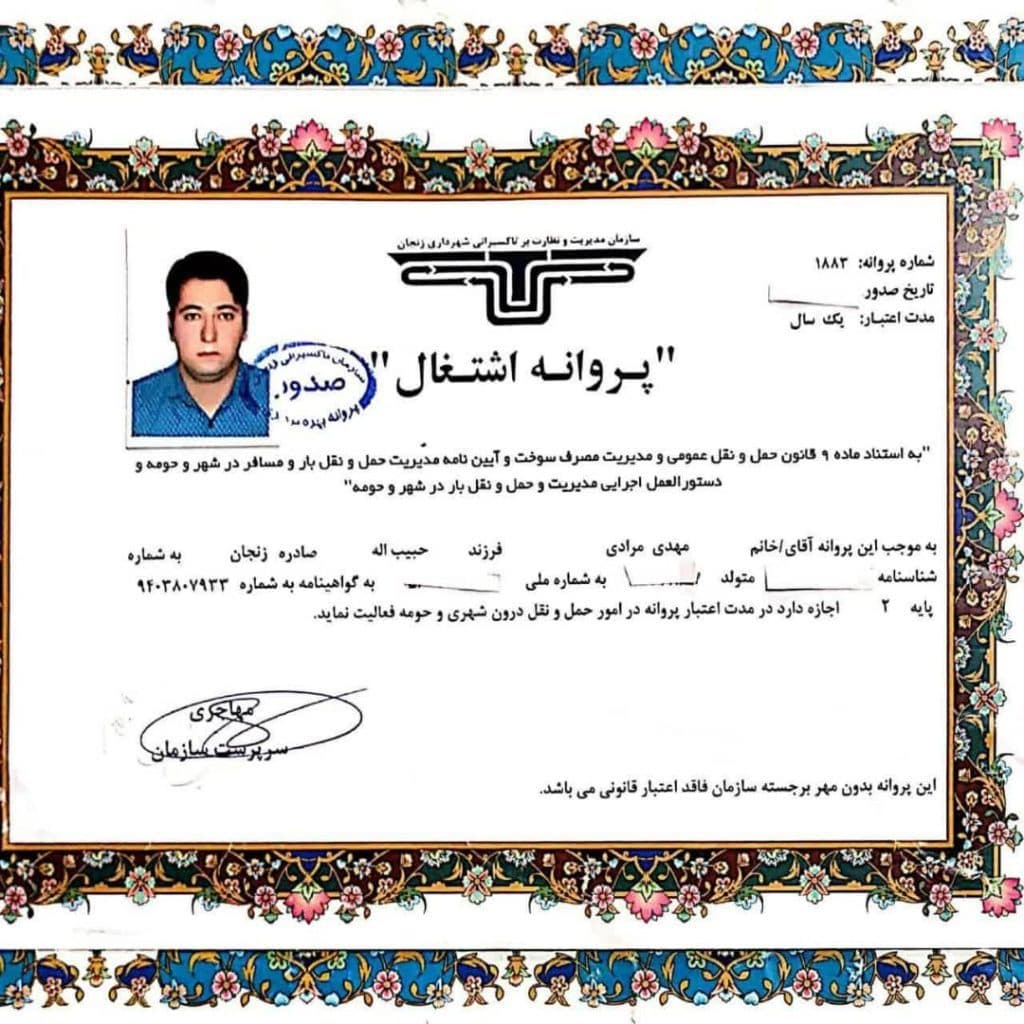 سازمان مدیریت و نظارت بر تاکسیرانی شهرداری زنجان
شماره پروانه: ۱۸۸۳
تاریخ صدور
مدت اعتبار: یک سال
"پروانه اشتغال"
سازمان تاکسیرانی
صدور
پروانه بهره
"به استناد ماده ۹ قانون حمل و نقل عمومی و مدیریت مصرف سوخت و آیین نامه مدیریت حمل و نقل بار و مسافر در شهر و حومه و
دستورالعمل اجرایی مدیریت و حمل و نقل بار در شهر و حومه"
به موجب این پروانه آقای/خانم مهدی مرادی فرزند حبیب اله صادره زنجان به شماره
شناسنامه متولد به شماره ملی به گواهینامه به شماره ۹۴۰۳۸۰۷۹۳۳
پایه ۲ اجازه دارد در مدت اعتبار پروانه در امور حمل و نقل درون شهری و حومه فعالیت نماید.
مهاجری
سرپرست سازمان
این پروانه بدون مهر برجسته سازمان فاقد اعتبار قانونی می باشد.